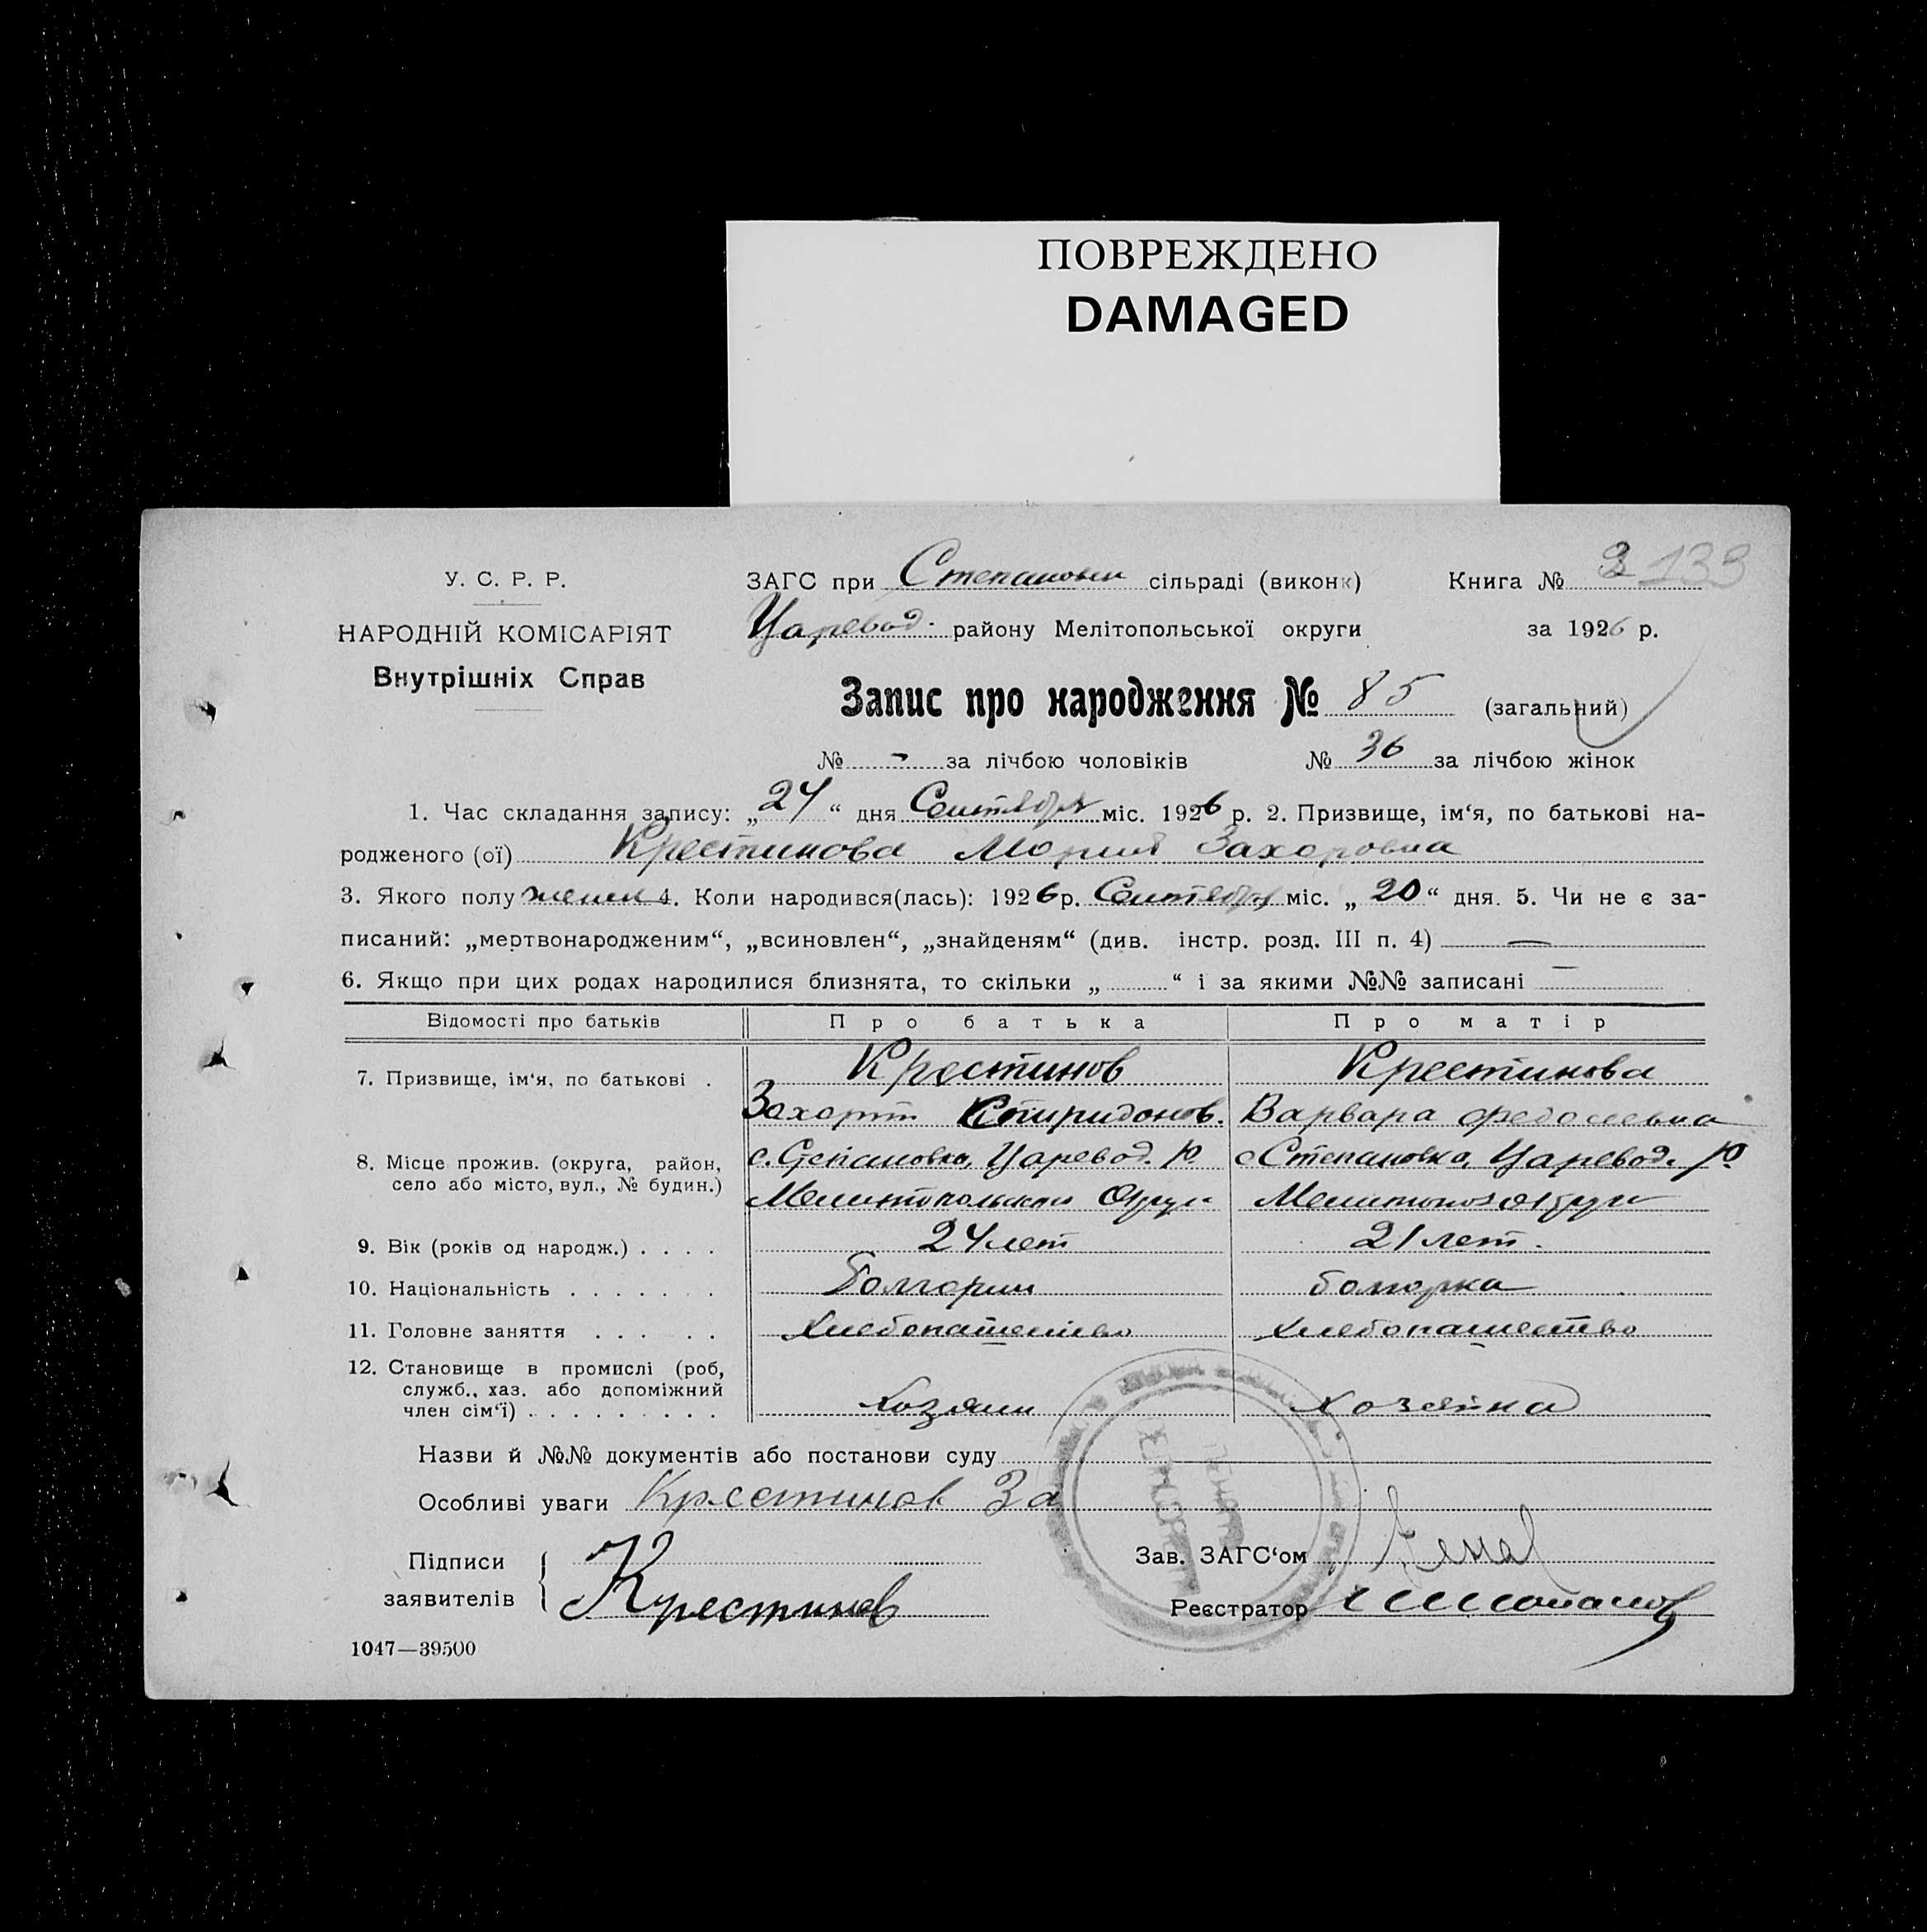 ПОВРЕЖДЕНО
DAMAGED
У. С. Р. Р.
НАРОДНІЙ КОМІСАРІЯТ
Внутрішніх Справ
ЗАГС при Степановск сільраді (виконк) Книга № 3 133
Царевод. району Мелітопольської округи за 1926 р.
Запис про народження № 85 (загальний)
№ - за лічбою чоловіків № 36 за лічбою жінок
1. Час складання запису: „24“ дня Сентября міс. 1926 р. 2. Призвище, ім‘я, по батькові на-
родженого (ої) Крестинова Мория Захоровна
3. Якого полу женск 4. Коли народився(лась): 1926 р. Сентября міс. „20“ дня. 5. Чи не є за-
писаний: „мертвонародженим“, „всиновлен“, „знайденям“ (див. інстр. розд. III п. 4) —
6. Якщо при цих родах народилися близнята, то скільки „ “ і за якими №№ записані —
Відомості про батьків Про батька Про матір
7. Призвище, ім‘я, по батькові . Крестинов Крестинова
Захорт Спиридонов. Варвара Федосеевна
8. Місце прожив. (округа, район, село або місто, вул., № будин.) с. Степановка, Царевод. р. с Степановка, Царевод. р.
9. Вік (років од народж.) . . . . 24 лет 21 лет.
10. Національність . . . . . . . Болгорин болгорка
11. Головне заняття . . . . . Хлебопашество Хлебопашество
12. Становище в промислі (роб, служб., хаз. або допоміжний член сім‘ї) . . . . . . . . . Хозяин Хозяйка
Назви й №№ документів або постанови суду
Особливі уваги Крестинов За
Підписи заявителів Крестинов
Зав. ЗАГС‘ом
Реєстратор
1047—39500